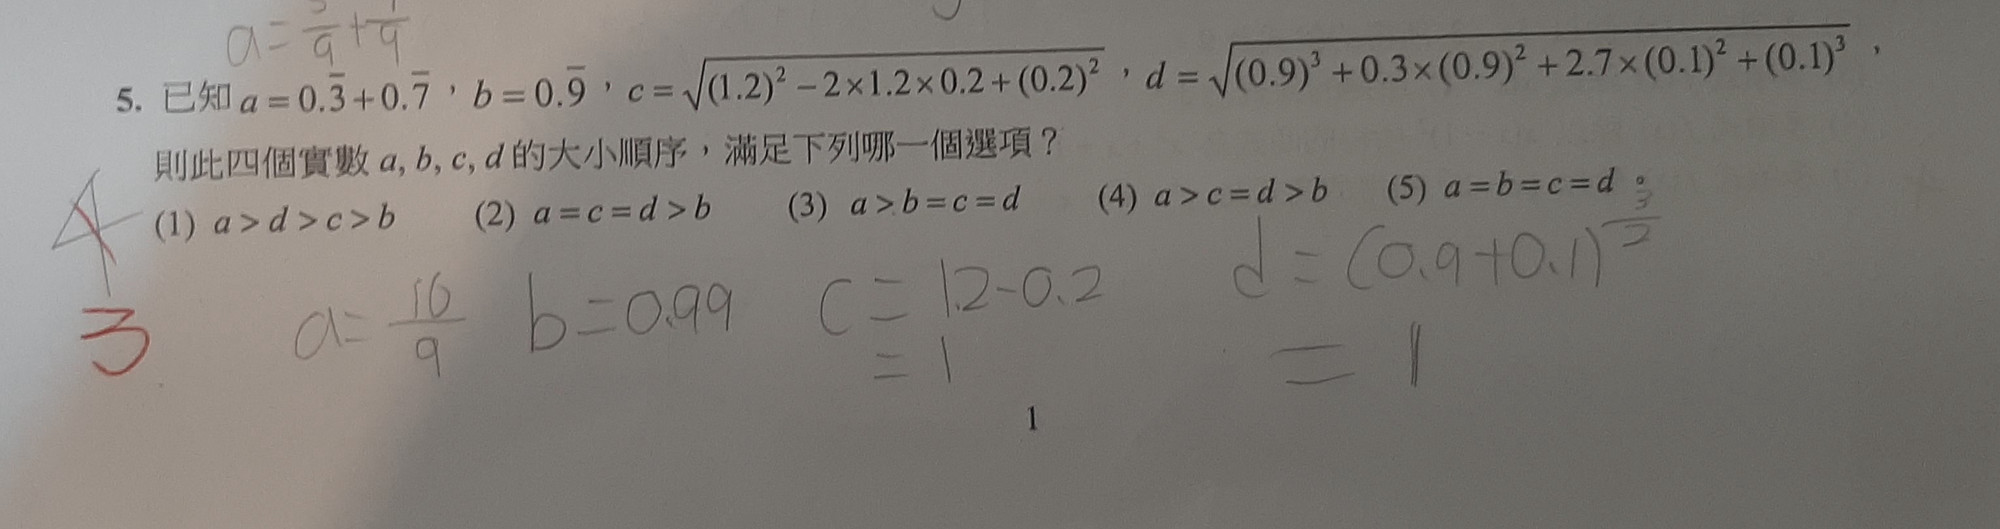 a = 3/9 + 7/9
5. 已知 a = 0.3̅ + 0.7̅，b = 0.9̅，c = √((1.2)² − 2×1.2×0.2 + (0.2)²)，d = √((0.9)³ + 0.3×(0.9)² + 2.7×(0.1)² + (0.1)³)，
則此四個實數 a, b, c, d 的大小順序，滿足下列哪一個選項？
(1) a > d > c > b (2) a = c = d > b (3) a > b = c = d (4) a > c = d > b (5) a = b = c = d。
4
3
a = 10/9 b = 0.99 c = 1.2 - 0.2 d = (0.9 + 0.1)^(3/2)
= 1 = 1
1